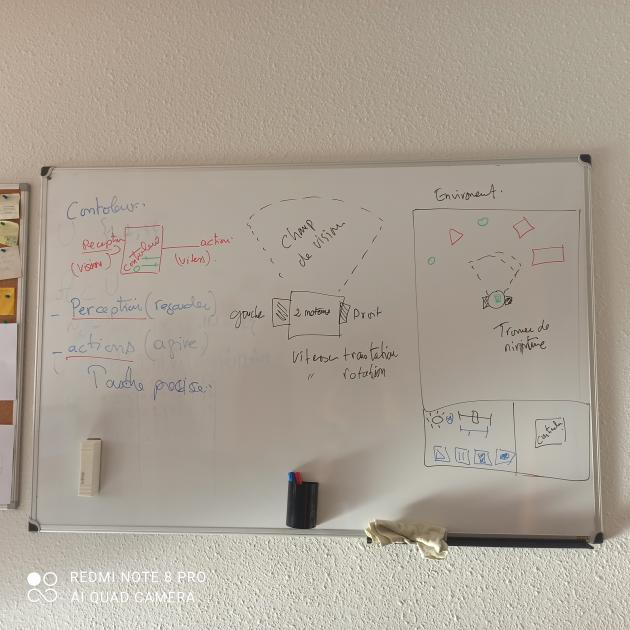 Controleur:
Reception
(vision)
Controleur
action
(vitess).
- Perception (regarder)
- actions (agire)
Tache precise:
Champ
de vision
gauche
2 moteurs
Droit
Vitesse translation
" rotation
Enviroment.
REDMI NOTE 8 PRO
AI QUAD CAMERA